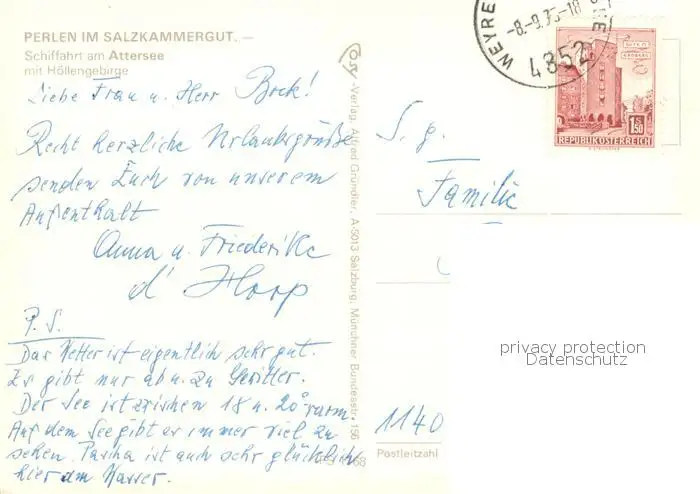 PERLEN IM SALZKAMMERGUT. —
Schiffahrt am Attersee
mit Höllengebirge
Liebe Frau u. Herr Bock!
Recht herzliche Urlaubsgrüße
senden Euch von unserem
Aufenthalt
Anna u. Friederike
d' Hoop
P.S.
Das Wetter ist eigentlich sehr gut.
Es gibt nur ab u. zu Gewitter.
Der See ist zwischen 18 u. 20° warm.
Auf dem See gibt es immer viel zu
sehen. Pascha ist auch sehr glücklich
hier am Wasser.
Cosy-Verlag, Alfred Gründler, A-5013 Salzburg, Münchner Bundesstr. 156
WEYRE
-8.-9.75-18
4852
1S50
REPUBLIK ÖSTERREICH
S. g.
Familie
privacy protection
Datenschutz
1140
Postleitzahl